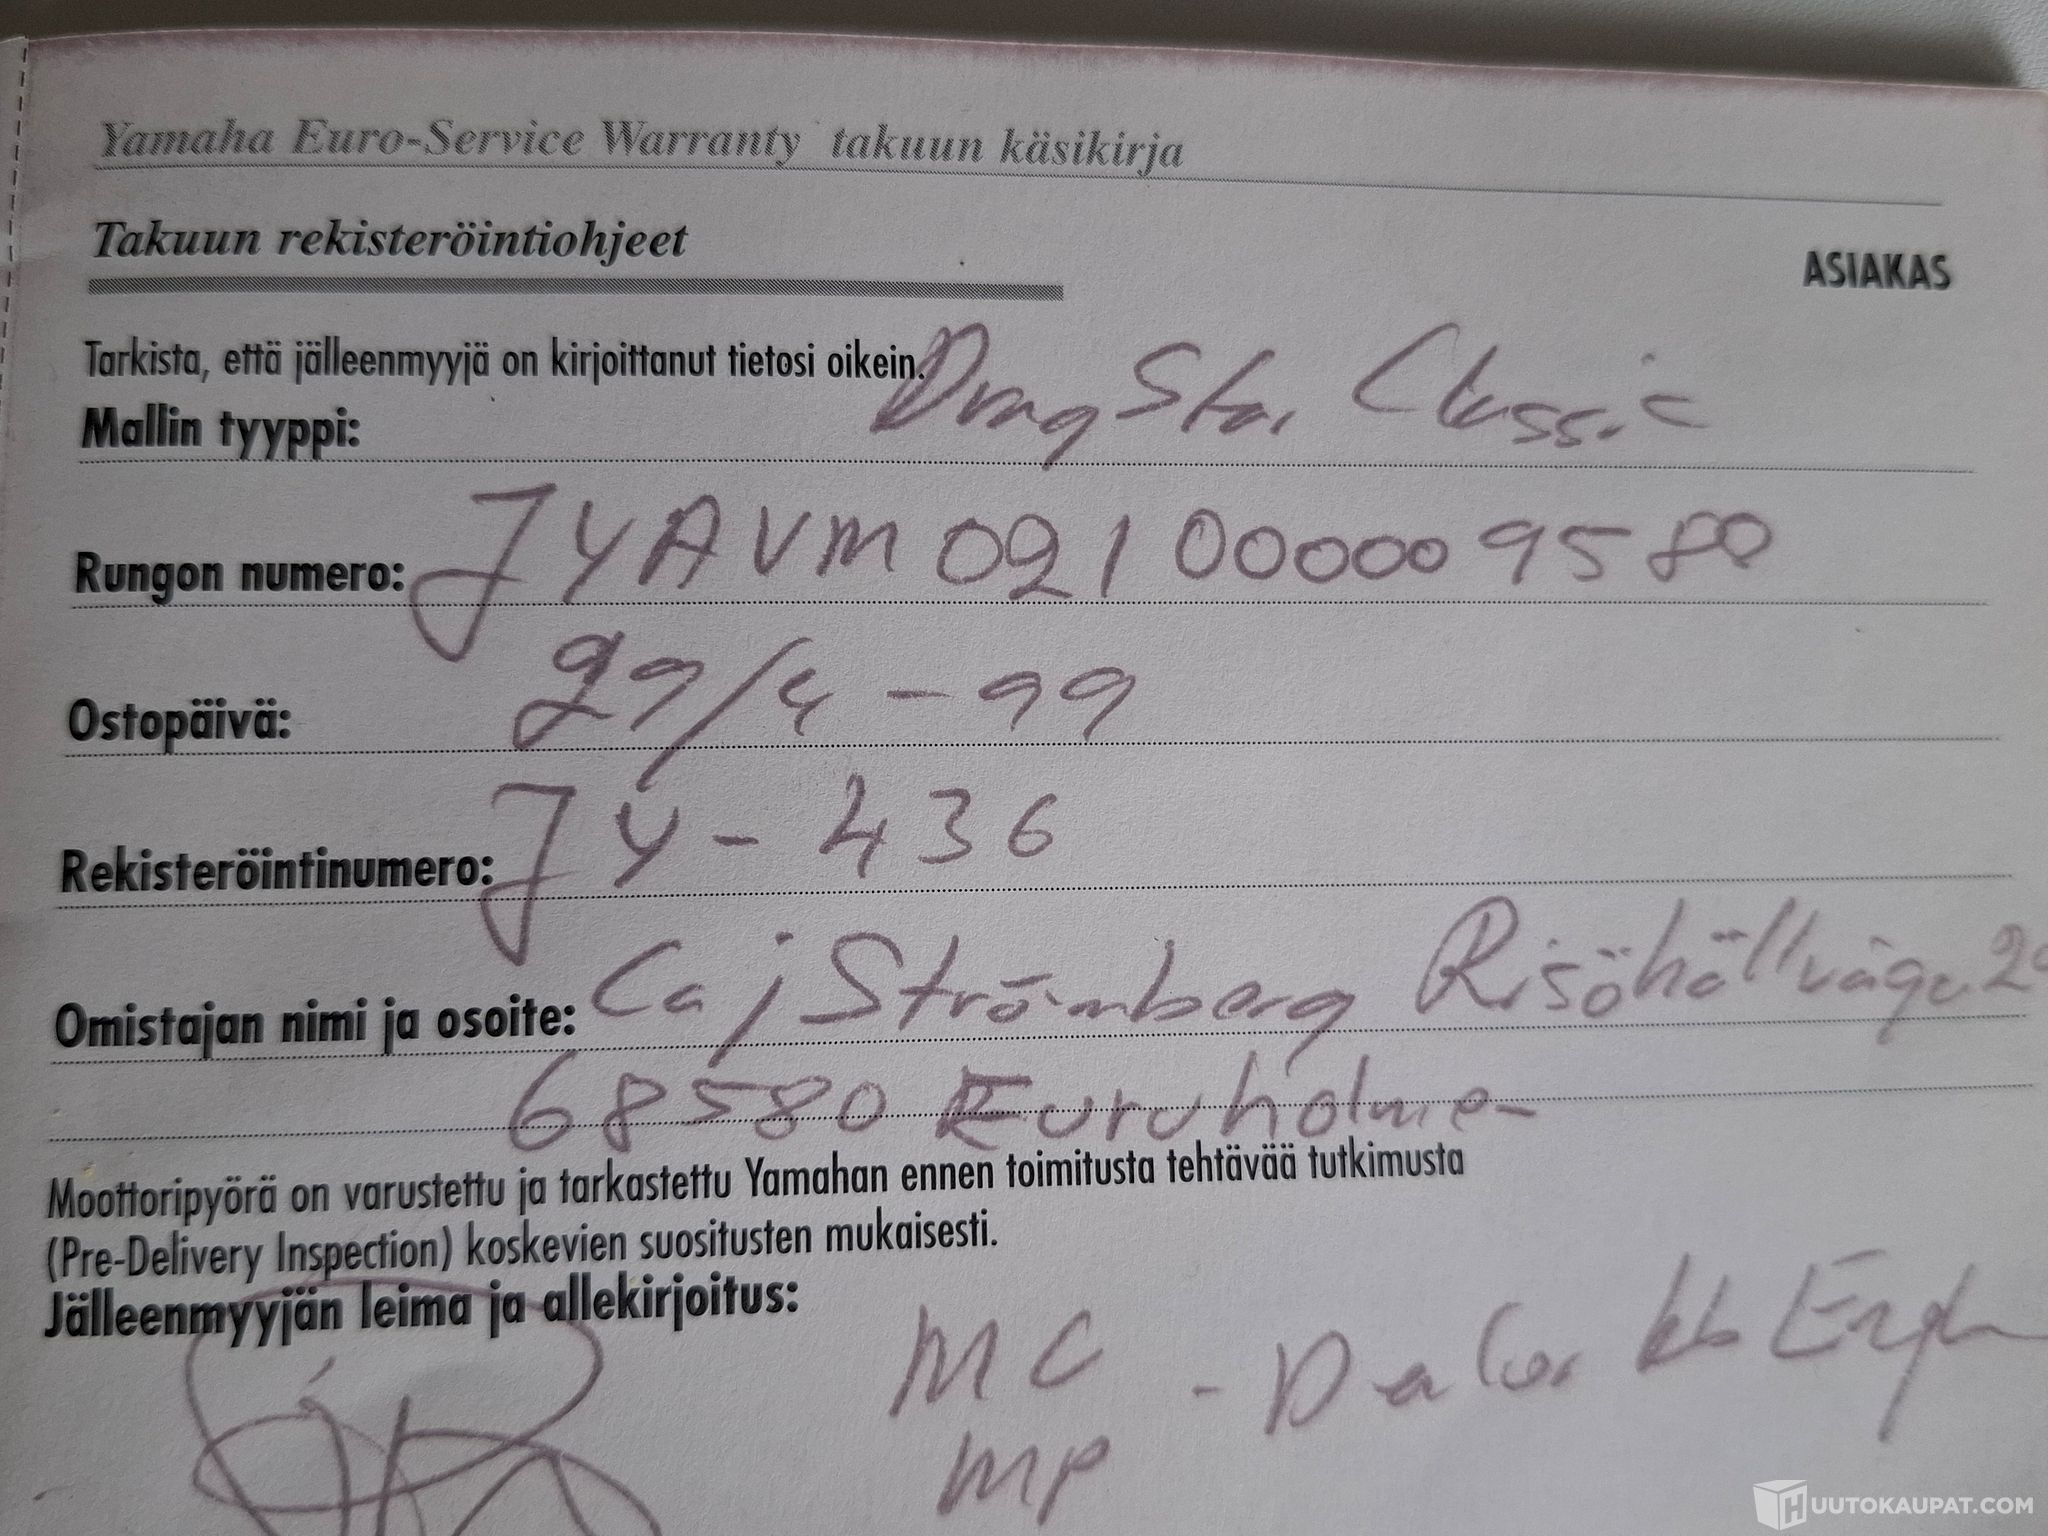 Yamaha Euro-Service Warranty takuun käsikirja
Takuun rekisteröintiohjeet
ASIAKAS
Tarkista, että jälleenmyyjä on kirjoittanut tietosi oikein.
Mallin tyyppi: DragStar Classic
Rungon numero: JYAVM021000009580
Ostopäivä: 29/4-99
Rekisteröintinumero: JY-436
Omistajan nimi ja osoite: Caj Strömberg
68580
Moottoripyörä on varustettu ja tarkastettu Yamahan ennen toimitusta tehtävää tutkimusta
(Pre-Delivery Inspection) koskevien suositusten mukaisesti.
Jälleenmyyjän leima ja allekirjoitus:
MC - Dealer
MP
HUUTOKAUPAT.COM